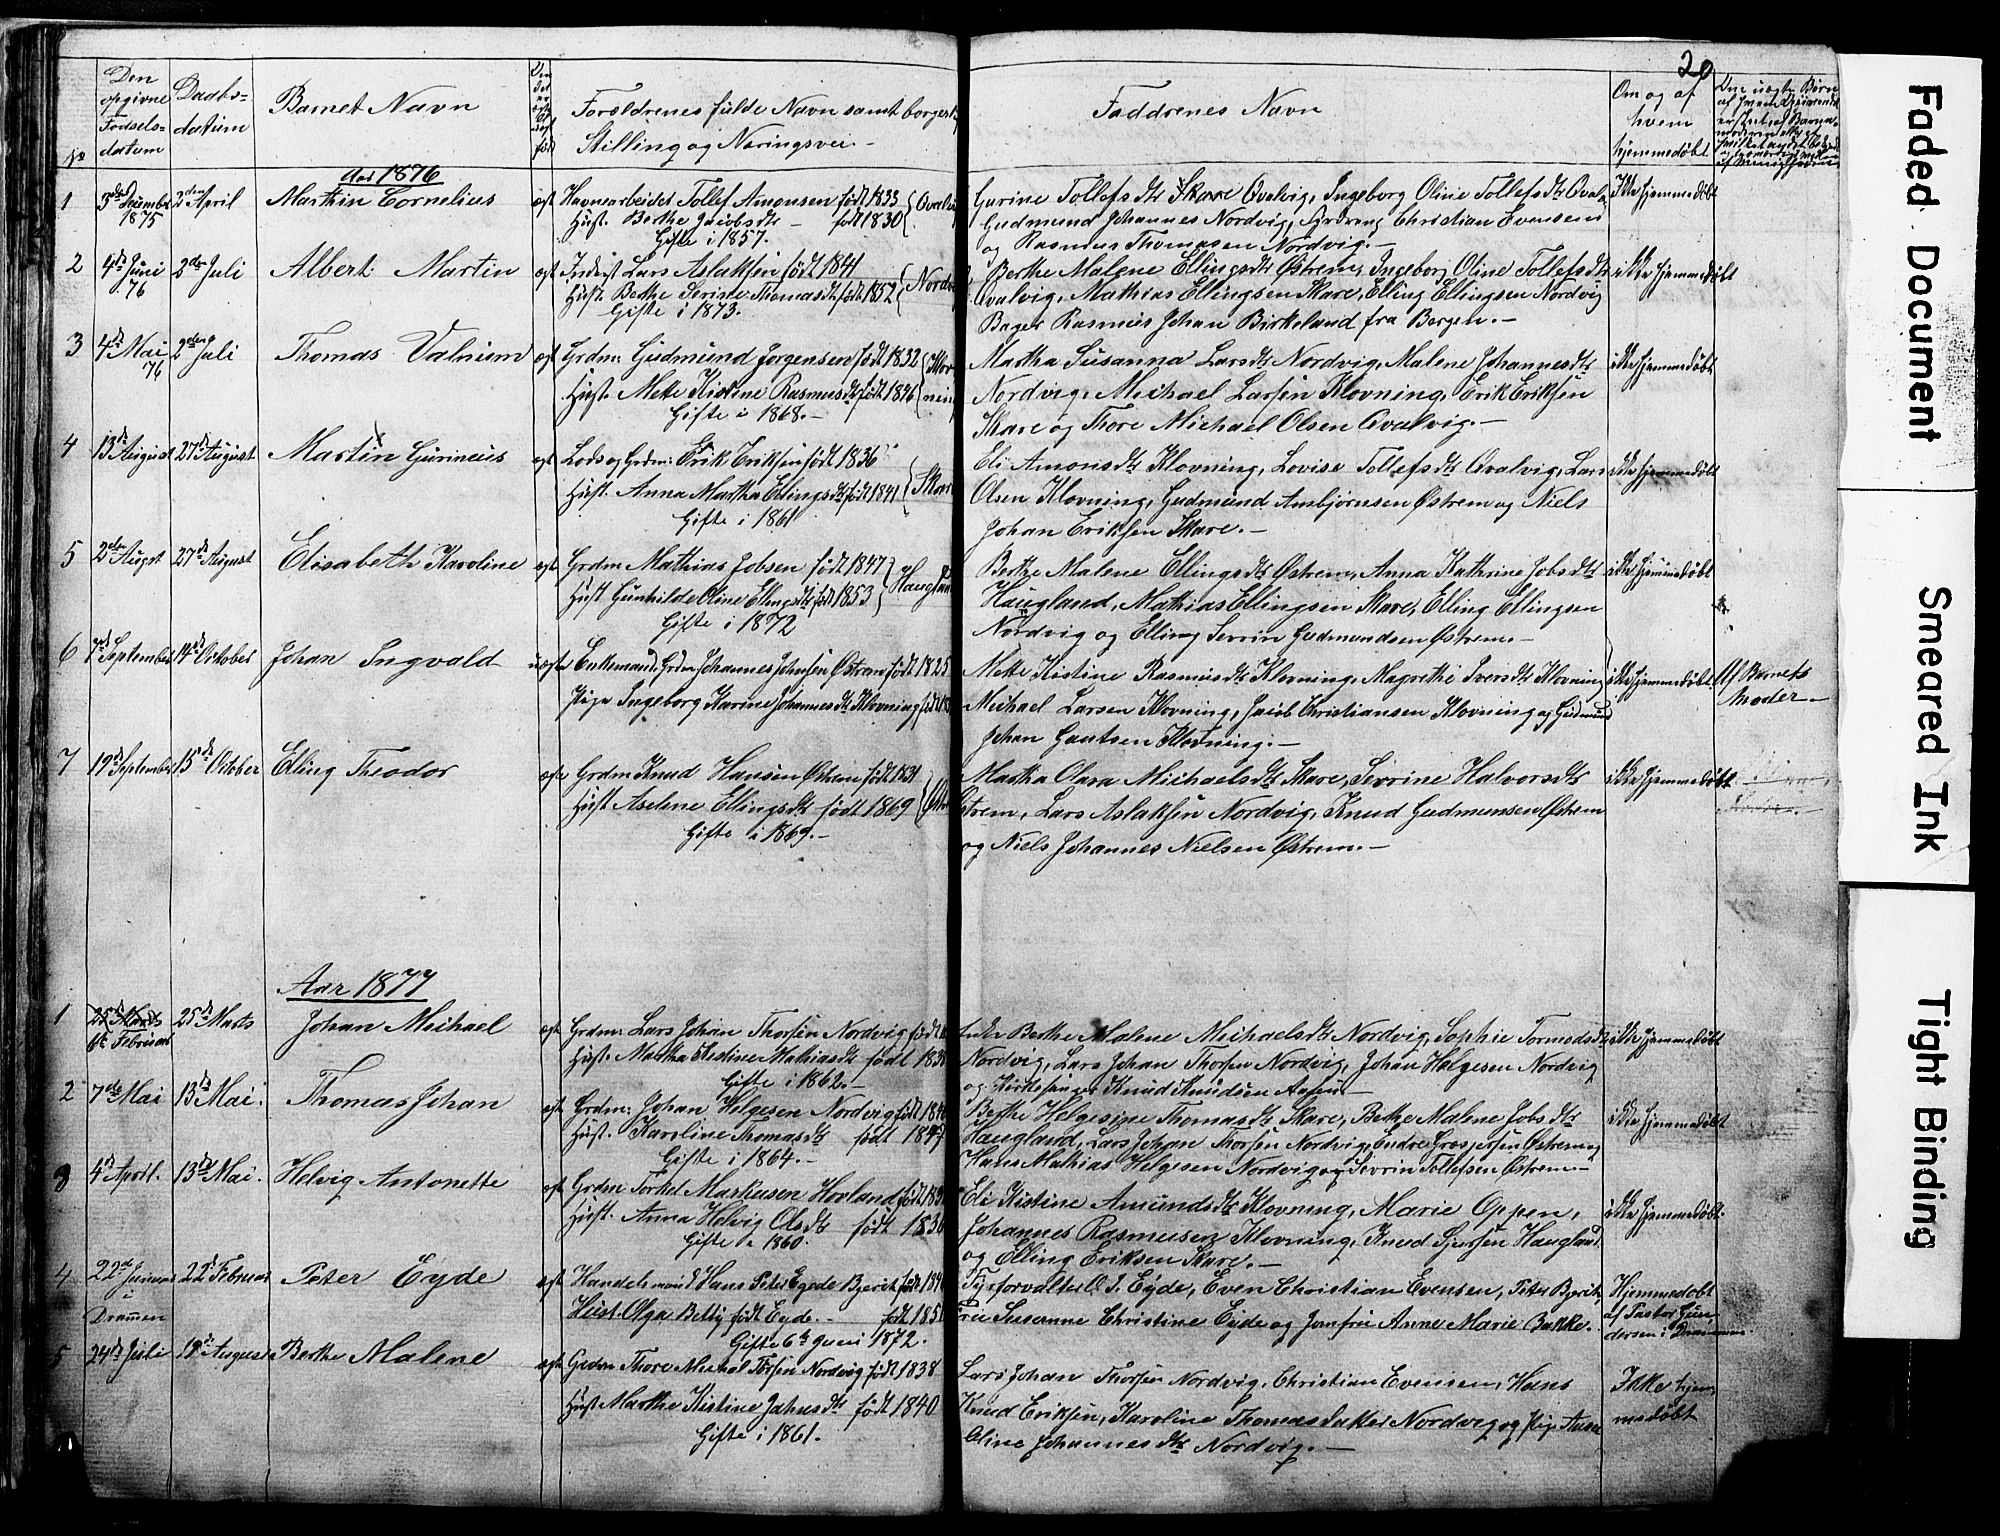 20
No
Den opgivne Fødselsdatum
Daabsdatum
Barnet Navn
Forældrenes fulde Navn samt borgerl.
Stilling og Næringsvei
Faddrenes Navn
Om og af hvem hjemmedøbt
Aar 1876
1 3die December 1875 2den April Marthin Cornelius
ægt Havnearbeider Tollef Amonsen født 1833
Hust. Berthe Jacobsdtr født 1830 Qvalvi
Gifte i 1857.
Gurine Tollefsdtr Skare Qvalvig, Ingeborg Oline Tollefsdtr Qvalv
Gudmund Johannes Nordvig, Christian Evensen
og Rasmus Thomasen Nordvig.
Ikke hjemmedøbt
2 4de Juni 76 2den Juli Albert Martin
ægt Inderst Lars Aslaksen født 1841
Hust. Berthe Serine Thomasdtr født 1852 Nordv
Gifte i 1873.
Berthe Malene Ellingsdtr Østrem, Ingeborg Oline Tollefsdtr
Qvalvig, Mathias Ellingsen Skare, Elling Ellingsen Nordvig
Bager Rasmus Johan Birkeland fra Bergen.
ikke hjemmedøbt
3 4de Mai 76 2den Juli Thomas Valnum
ægt Grdm: Gudmund Jorgensen født 1832
Hust. Mette Kistine Rasmusdtr født 1846
Gifte i 1868.
Martha Susanna Larsdtr Nordvig, Malene Johannesdtr
Nordvig, Michael Larsen Klovning, Erik Eriksen
Skare og Thore Michael Olsen Qvalvig.
ikke hjemmedøbt
4 13de August 27de August Martin Gurineus
ægt Lods og Grdm: Erik Eriksen født 1836
Hust. Anna Martha Ellingsdtr født 1841 Skar
Gifte i 1861
Eli Amonsdtr Klovning, Lovise Tollefsdtr Qvalvig, Lars
Olsen Klovning, Gudmund Ambjørnsen Østrem og Niels
Johan Eriksen Skare.
ikke hjemmedøbt
5 2den Augst 27de August Elisabeth Karoline
ægt Grdm Mathias Jobsen født 1847
Hust Gunhilde Oline Ellingsdtr født 1853 Haugla
Gifte i 1872
Berthe Malene Ellingsdtr Østrem, Anna Kathrine Jobsdtr
Haugland, Mathias Ellingsen Skare, Elling Ellingsen
Nordvig og Elling Sevrin Gudmundsen Østrem.
ikke hjemmedøbt
6 7de September 14de October Johan Ingvald
uægte Enkemand, Grdm Johannes Johnsen Østrem født 1825
Pige Ingeborg Karine Johannesdtr Klovning født
Mette Kistine Rasmusdtr Klovning, Magrethe Iversdtr Klovning
Michael Larsen Klovning, Jacob Christiansen Klovning og Gudmund
Johan Gautsen Klovning.
ikke hjemmedøbt
Af Barnets Moder
7 19de September 15de October Elling Theodor
ægte Grdm Knud Hansen Østrem født 1831
Hust Aselene Ellingsdtr født 1869
Gifte i 1869.
Martha Olara Michaelsdtr Skare, Sevrine Halvorsdtr
Østrem, Lars Aslaksen Nordvig, Knud Gudmunsen Østrem
og Niels Johannes Nielsen Østrem.
ikke hjemmedøbt
Aar 1877
1 25de Marts 6te Februar 25de Marts Johan Michael
ægt Grdm: Lars Johan Thorsen Nordvig født
Hust. Martha Kistine Mathiasdtr født 183
Gifte i 1862.
Enke Berthe Malene Michaelsdtr Nordvig, Sophie Tormodsdtr
Nordvig, Lars Johan Thorsen Nordvig, Johan Helgesen Nordvig
og Kirkesanger Knud Knudsen
ikke hjemmedøbt
2 7de Mai 13de Mai. Thomas Johan
ægt Grdm: Johan Helgesen Nordvig født 184
Hust. Karoline Thomasdtr født 1847
Gifte i 1864.
Berthe Helgesine Thomasdtr Skare, Berthe Malene Jobsdtr
Haugland, Lars Johan Thorsen Nordvig, Endre Østrem og
Hans Mathias Helgesen Nordvig og Sevrin Tollefsen Østrem.
ikke hjemmedøbt
3 4de April. 13de Mai. Helvig Antonette
ægt Grdm Torkel Markusen Hovland født 183
Hust. Anna Helvig Olsdtr født 1836
Gifte i 1860.
Eli Kistine Amundsdtr Klovning, Marie Oppen,
Johannes Rasmusen Klovning, Knud Haugland
og Elling Eriksen Skare.
ikke hjemmedøbt.
4 22de Januar i Drammen 22de Februar Peter Eyde
ægt Handelsmand Hans Peter Eyede Bjerck født 184
Hust. Olga Betty født Eyde. født 1851
Gifte 6te Juni 1872.
Fyrforvalter O. T. Eyde, Even Christian Evensen, Peter Bjerck,
Susanne Christine Eyde og Jomfru Anne Marie Bakke.
Hjemmedøbt af Pastor Gundersen i Drammen.
5 24de Juli 19de August Berthe Malene
ægt Grdm Thore Michal Torsen Nordvig født 1838
Hust Marthe Kistine Jahnsdtr født 1840
Gifte i 1861.
Lars Johan Thorsen Nordvig, Christian Evensen, Hans
Knud Eriksen, Karoline Thomasdatter Nordvig og Pige Anne
Oline Johannesdtr Nordvig.
Ikke hjemmedøbt
Faded Document
Smeared Ink
Tight Binding